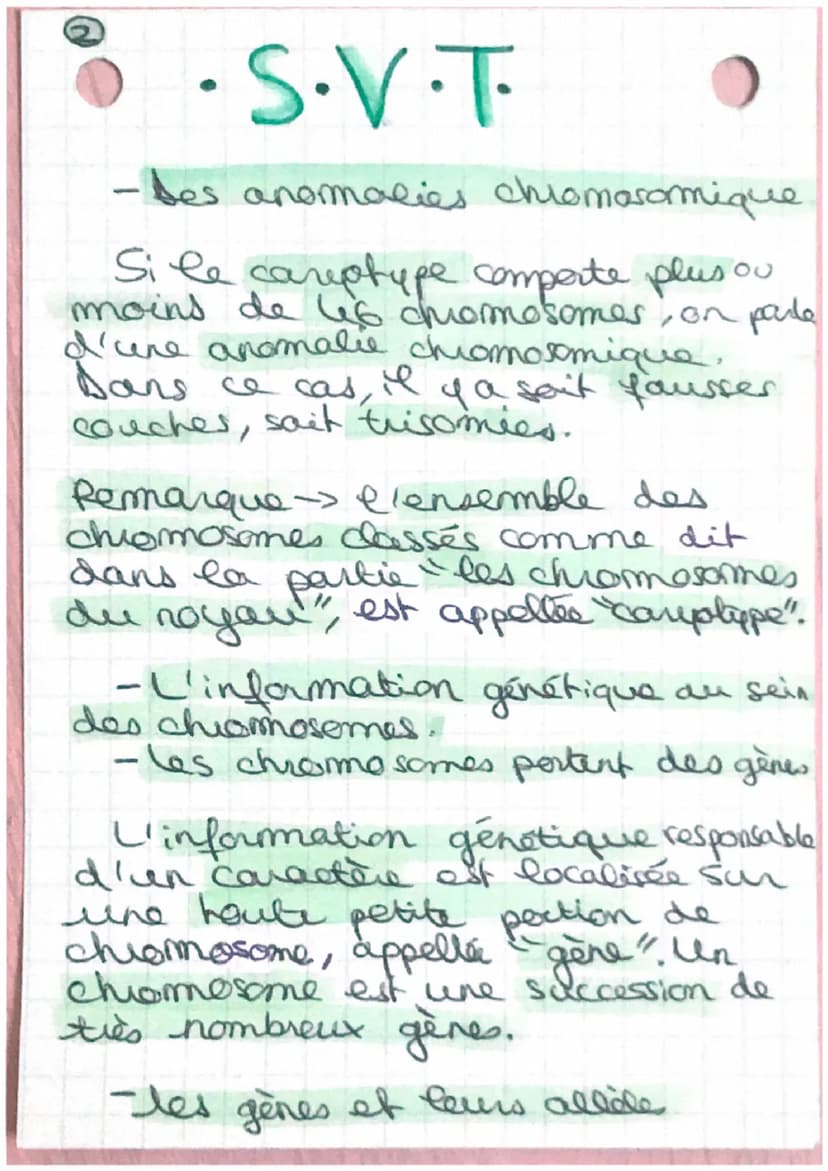 2
· S · V · T ·
- Les anomalies chromosomique
Si le caryotype comporte plus ou
moins de 46 chromosomes, on parle
d'une anomalie chromosomique.
Dans ce cas, il y a soit fausses
couches, soit trisomies.
Remarque -> l'ensemble des
chromosomes classés comme dit
dans la partie "les chromosomes
du noyau", est appellée "caryotype".
- L'information génétique au sein
des chromosomes.
- Les chromosomes portent des gènes
L'information génétique responsable
d'un caractère est localisée sur
une toute petite portion de
chromosome, appellée "gène". Un
chromosome est une succession de
très nombreux gènes.
- les gènes et leurs allèle